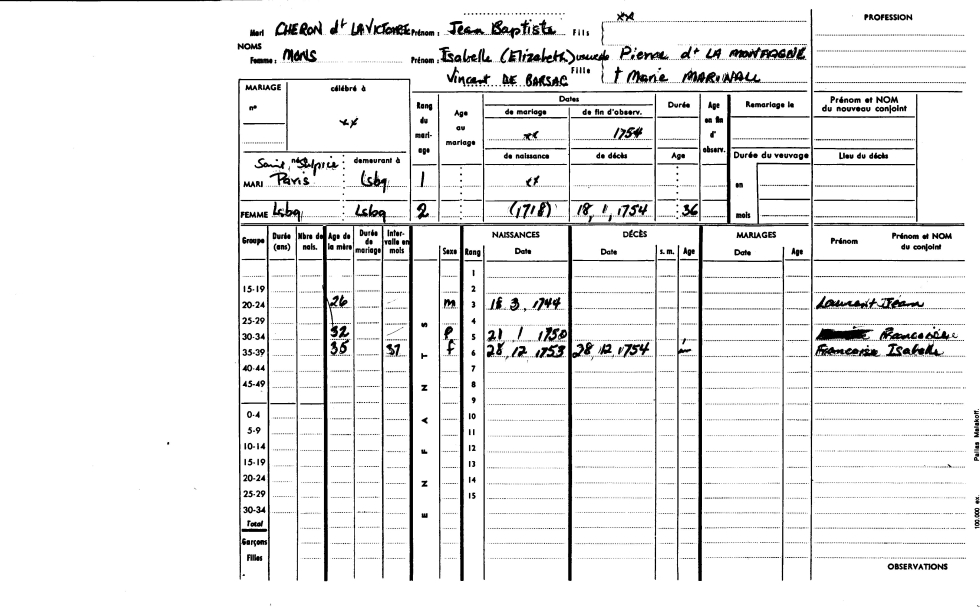 Mari CHERON dt LA VICTOIRE Prénom : Jean Baptiste Fils xx PROFESSION
NOMS
Femme : MONS Prénom : Isabelle (Elizabeth) veuve de Pierre dt LA MONTAGNE
Vincent DE BARSAC Fille † Marie MARINALL
MARIAGE célébré à Rang du mari-age Age au mariage Dates Durée Age en fin d' observ. Remariage le Prénom et NOM du nouveau conjoint
n° xx de mariage de fin d'observ.
xx 1754
de naissance de décès Age Durée du veuvage Lieu du décès
Saint né Sulpice demeurant à
MARI Paris Lsbg 1 xx en
FEMME Lsbg Lsbg 2 (1718) 18, 1, 1754 36 mois
Groupe Durée (ans) Nbre de nais. Age de la mère Durée de mariage Inter-valle en mois ENFANTS Sexe Rang NAISSANCES Date DÉCÈS Date s. m. Age MARIAGES Date Age Prénom Prénom et NOM du conjoint
1
15-19 2
20-24 26 m 3 18 3, 1744 Laurent Jean
25-29 4
30-34 32 f 5 21 1 1750 Francoise
35-39 35 37 f 6 28, 12, 1753 28, 12, 1754 Francoise Isabelle
40-44 7
45-49 8
9
0-4 10
5-9 11
10-14 12
15-19 13
20-24 14
25-29 15
30-34
Total
Garçons
Filles
OBSERVATIONS
100.000 ex. Pallas Malakoff.